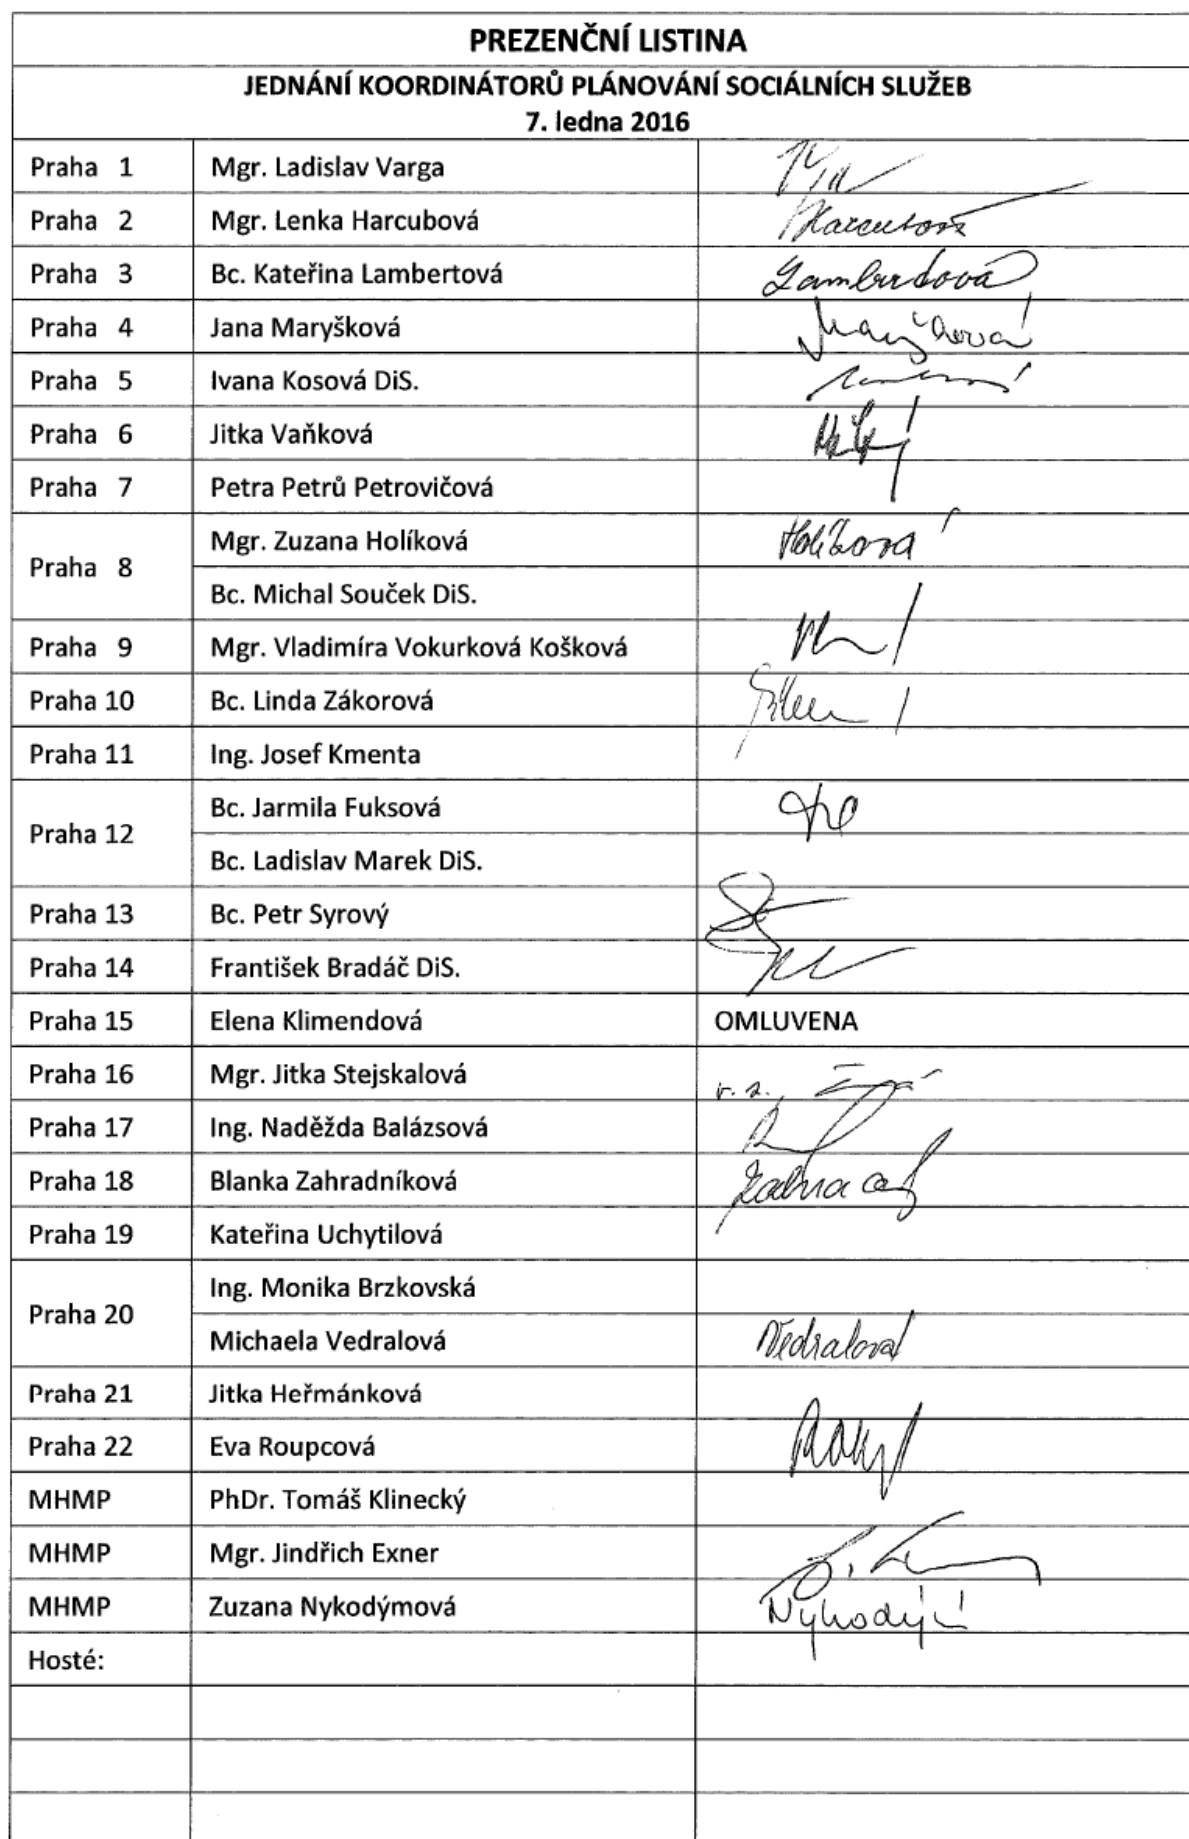 PREZENČNÍ LISTINA
JEDNÁNÍ KOORDINÁTORŮ PLÁNOVÁNÍ SOCIÁLNÍCH SLUŽEB
7. ledna 2016
Praha 1 Mgr. Ladislav Varga
Praha 2 Mgr. Lenka Harcubová Harcubová
Praha 3 Bc. Kateřina Lambertová Lambertová
Praha 4 Jana Maryšková Maryšková
Praha 5 Ivana Kosová DiS.
Praha 6 Jitka Vaňková
Praha 7 Petra Petrů Petrovičová
Praha 8 Mgr. Zuzana Holíková Holíková
Bc. Michal Souček DiS.
Praha 9 Mgr. Vladimíra Vokurková Košková
Praha 10 Bc. Linda Zákorová
Praha 11 Ing. Josef Kmenta
Praha 12 Bc. Jarmila Fuksová
Bc. Ladislav Marek DiS.
Praha 13 Bc. Petr Syrový
Praha 14 František Bradáč DiS.
Praha 15 Elena Klimendová OMLUVENA
Praha 16 Mgr. Jitka Stejskalová v. z.
Praha 17 Ing. Naděžda Balázsová
Praha 18 Blanka Zahradníková
Praha 19 Kateřina Uchytilová
Praha 20 Ing. Monika Brzkovská
Michaela Vedralová Vedralová
Praha 21 Jitka Heřmánková
Praha 22 Eva Roupcová
MHMP PhDr. Tomáš Klinecký
MHMP Mgr. Jindřich Exner
MHMP Zuzana Nykodýmová
Hosté: